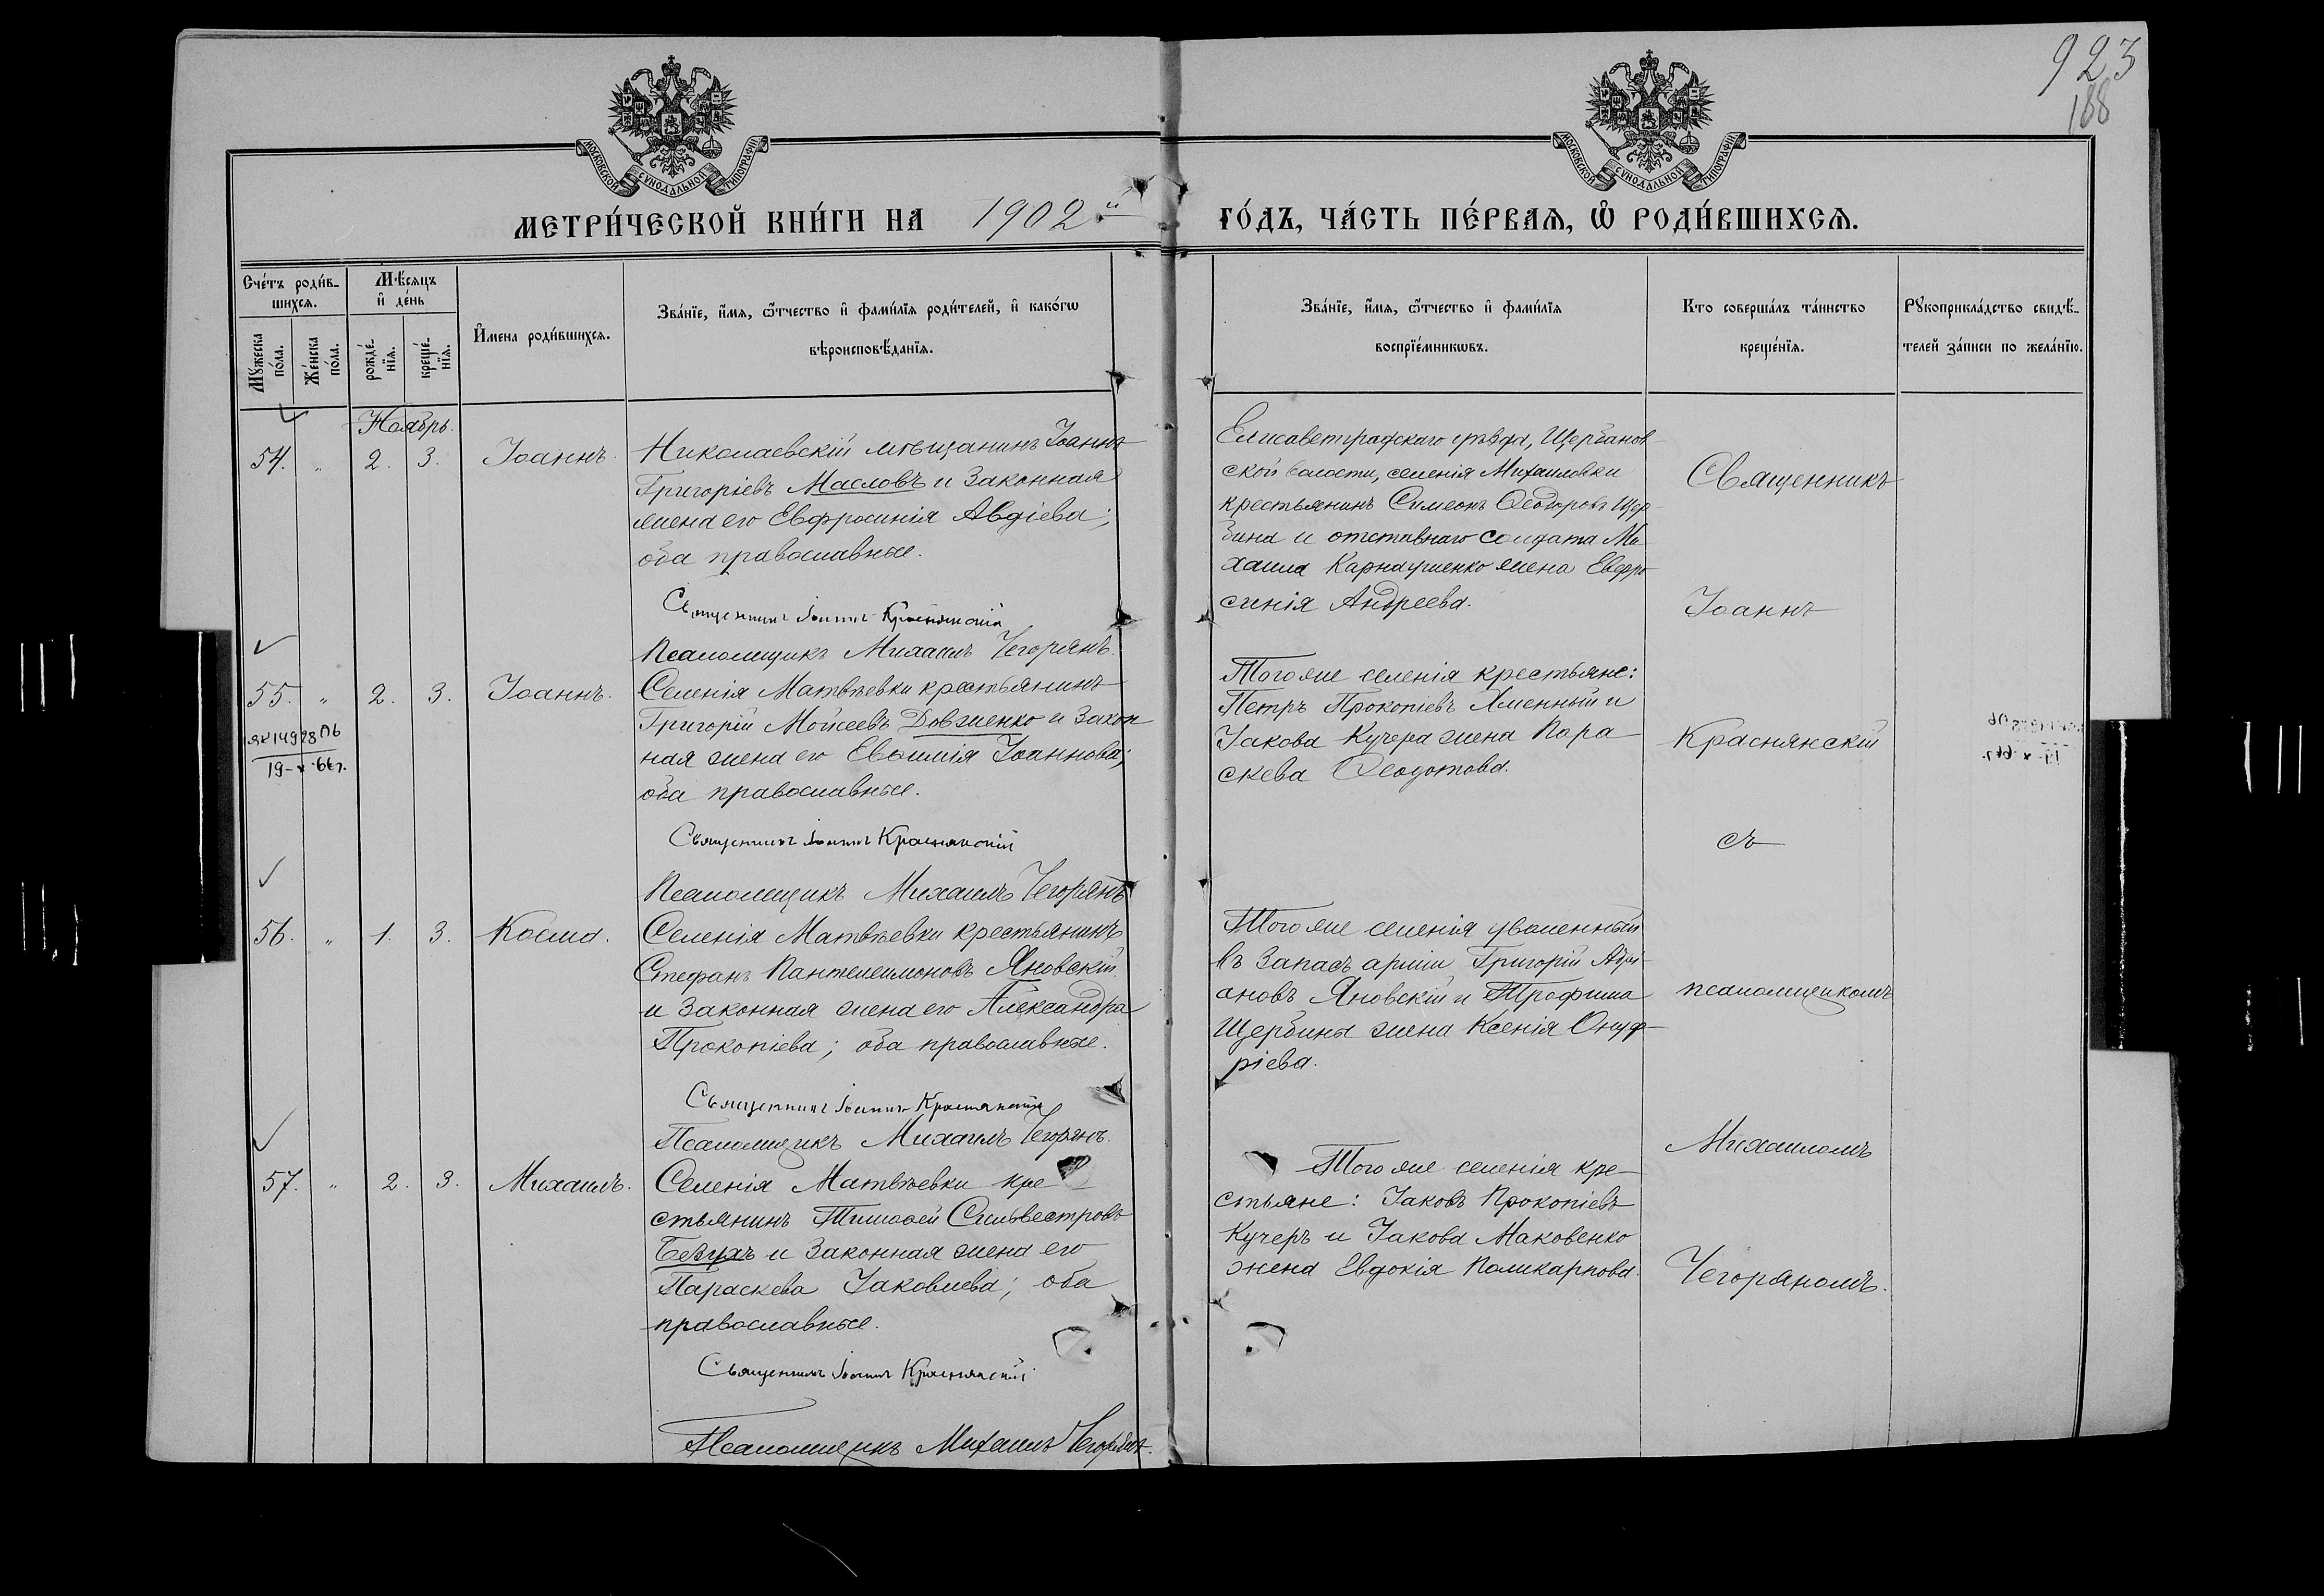 923
188
МОСКОВСКОЙ СУНОДАЛЬНОЙ ТИПОГРАФІИ
МОСКОВСКОЙ СУНОДАЛЬНОЙ ТИПОГРАФІИ
МЕТРИ́ЧЕСКОЙ КНИ́ГИ НА 1902й
ГО́ДЪ, ЧА́СТЬ ПЕ́РВАѦ, Ѡ҆ РОДИ́ВШИХСѦ.
Сче́тъ роди́в-
шихсѧ.
Мꙋ́жеска
по́ла.
Же́нска
по́ла.
Мѣ́сѧцъ
и҆ де́нь
рожде́-
нїѧ.
креще́-
нїѧ.
И҆мена роди́вшихсѧ.
Зва́нїе, и҆́мѧ, ѻ҆́тчество и҆ фами́лїѧ роди́телей, и҆ како́гѡ
вѣроисповѣ́данїѧ.
Зва́нїе, и҆́мѧ, ѻ҆́тчество и҆ фами́лїѧ
воспрїе́мникѡвъ.
Кто соверша́лъ та́инство
креще́нїѧ.
Рꙋкоприкла́дство свидѣ́-
телей за́писи по жела́нїю.
Ноябрь.
54. " 2. 3. Іоаннъ.
Николаевскій мѣщанинъ Іоаннъ
Григоріевъ Масловъ и законная
жена его Евфросинія Авдіева;
оба православные.
Священникъ Іоаннъ Краснянскій
Псаломщикъ Михаилъ Чегорянъ.
Елисаветградскаго уѣзда, Щербанов-
ской волости, селенія Михаиловки
крестьянинъ Симеонъ Ѳеодоровъ Щер-
бина и отставнаго солдата Ми-
хаила Карнаушенко жена Евфро-
синія Андреева.
55. " 2. 3. Іоаннъ.
ЯК 149280б
19-х-66г.
Селенія Матвѣевки крестьянинъ
Григорій Моѵсеевъ Довженко и закон
ная жена его Евѳимія Іоаннова;
оба православные.
Священникъ Іоаннъ Краснянскій
Псаломщикъ Михаилъ Чегорянъ
Того же селенія крестьяне:
Петръ Прокопіевъ Хменный и
Іакова Кучера жена Пара-
скева Ѳеодотова.
56. " 1. 3. Косма.
Селенія Матвѣевки крестьянинъ
Стефанъ Пантелеимоновъ Яновскій
и законная жена его Александра
Прокопіева; оба православные.
Священникъ Іоаннъ Краснянскій
Псаломщикъ Михаилъ Чегорянъ.
Того же селенія уволенный
въ запасъ арміи Григорій Адрі-
ановъ Яновскій и Трофима
Щербины жена Ксенія Онуф-
ріева.
57. " 2. 3. Михаилъ.
Селенія Матвѣевки кре-
стьянинъ Тимоѳей Сильвестровъ
Безухъ и законная жена его
Параскева Іаковлева; оба
православные.
Священникъ Іоаннъ Краснянскій
Псаломщикъ Михаилъ Чегорянъ.
Того же селенія кре-
стьяне: Іаковъ Прокопіевъ
Кучеръ и Іакова Маковенко
жена Евдокія Поликарпова.
Священникъ
Іоаннъ
Краснянскій
съ
псаломщикомъ
Михаиломъ
Чегоряномъ.